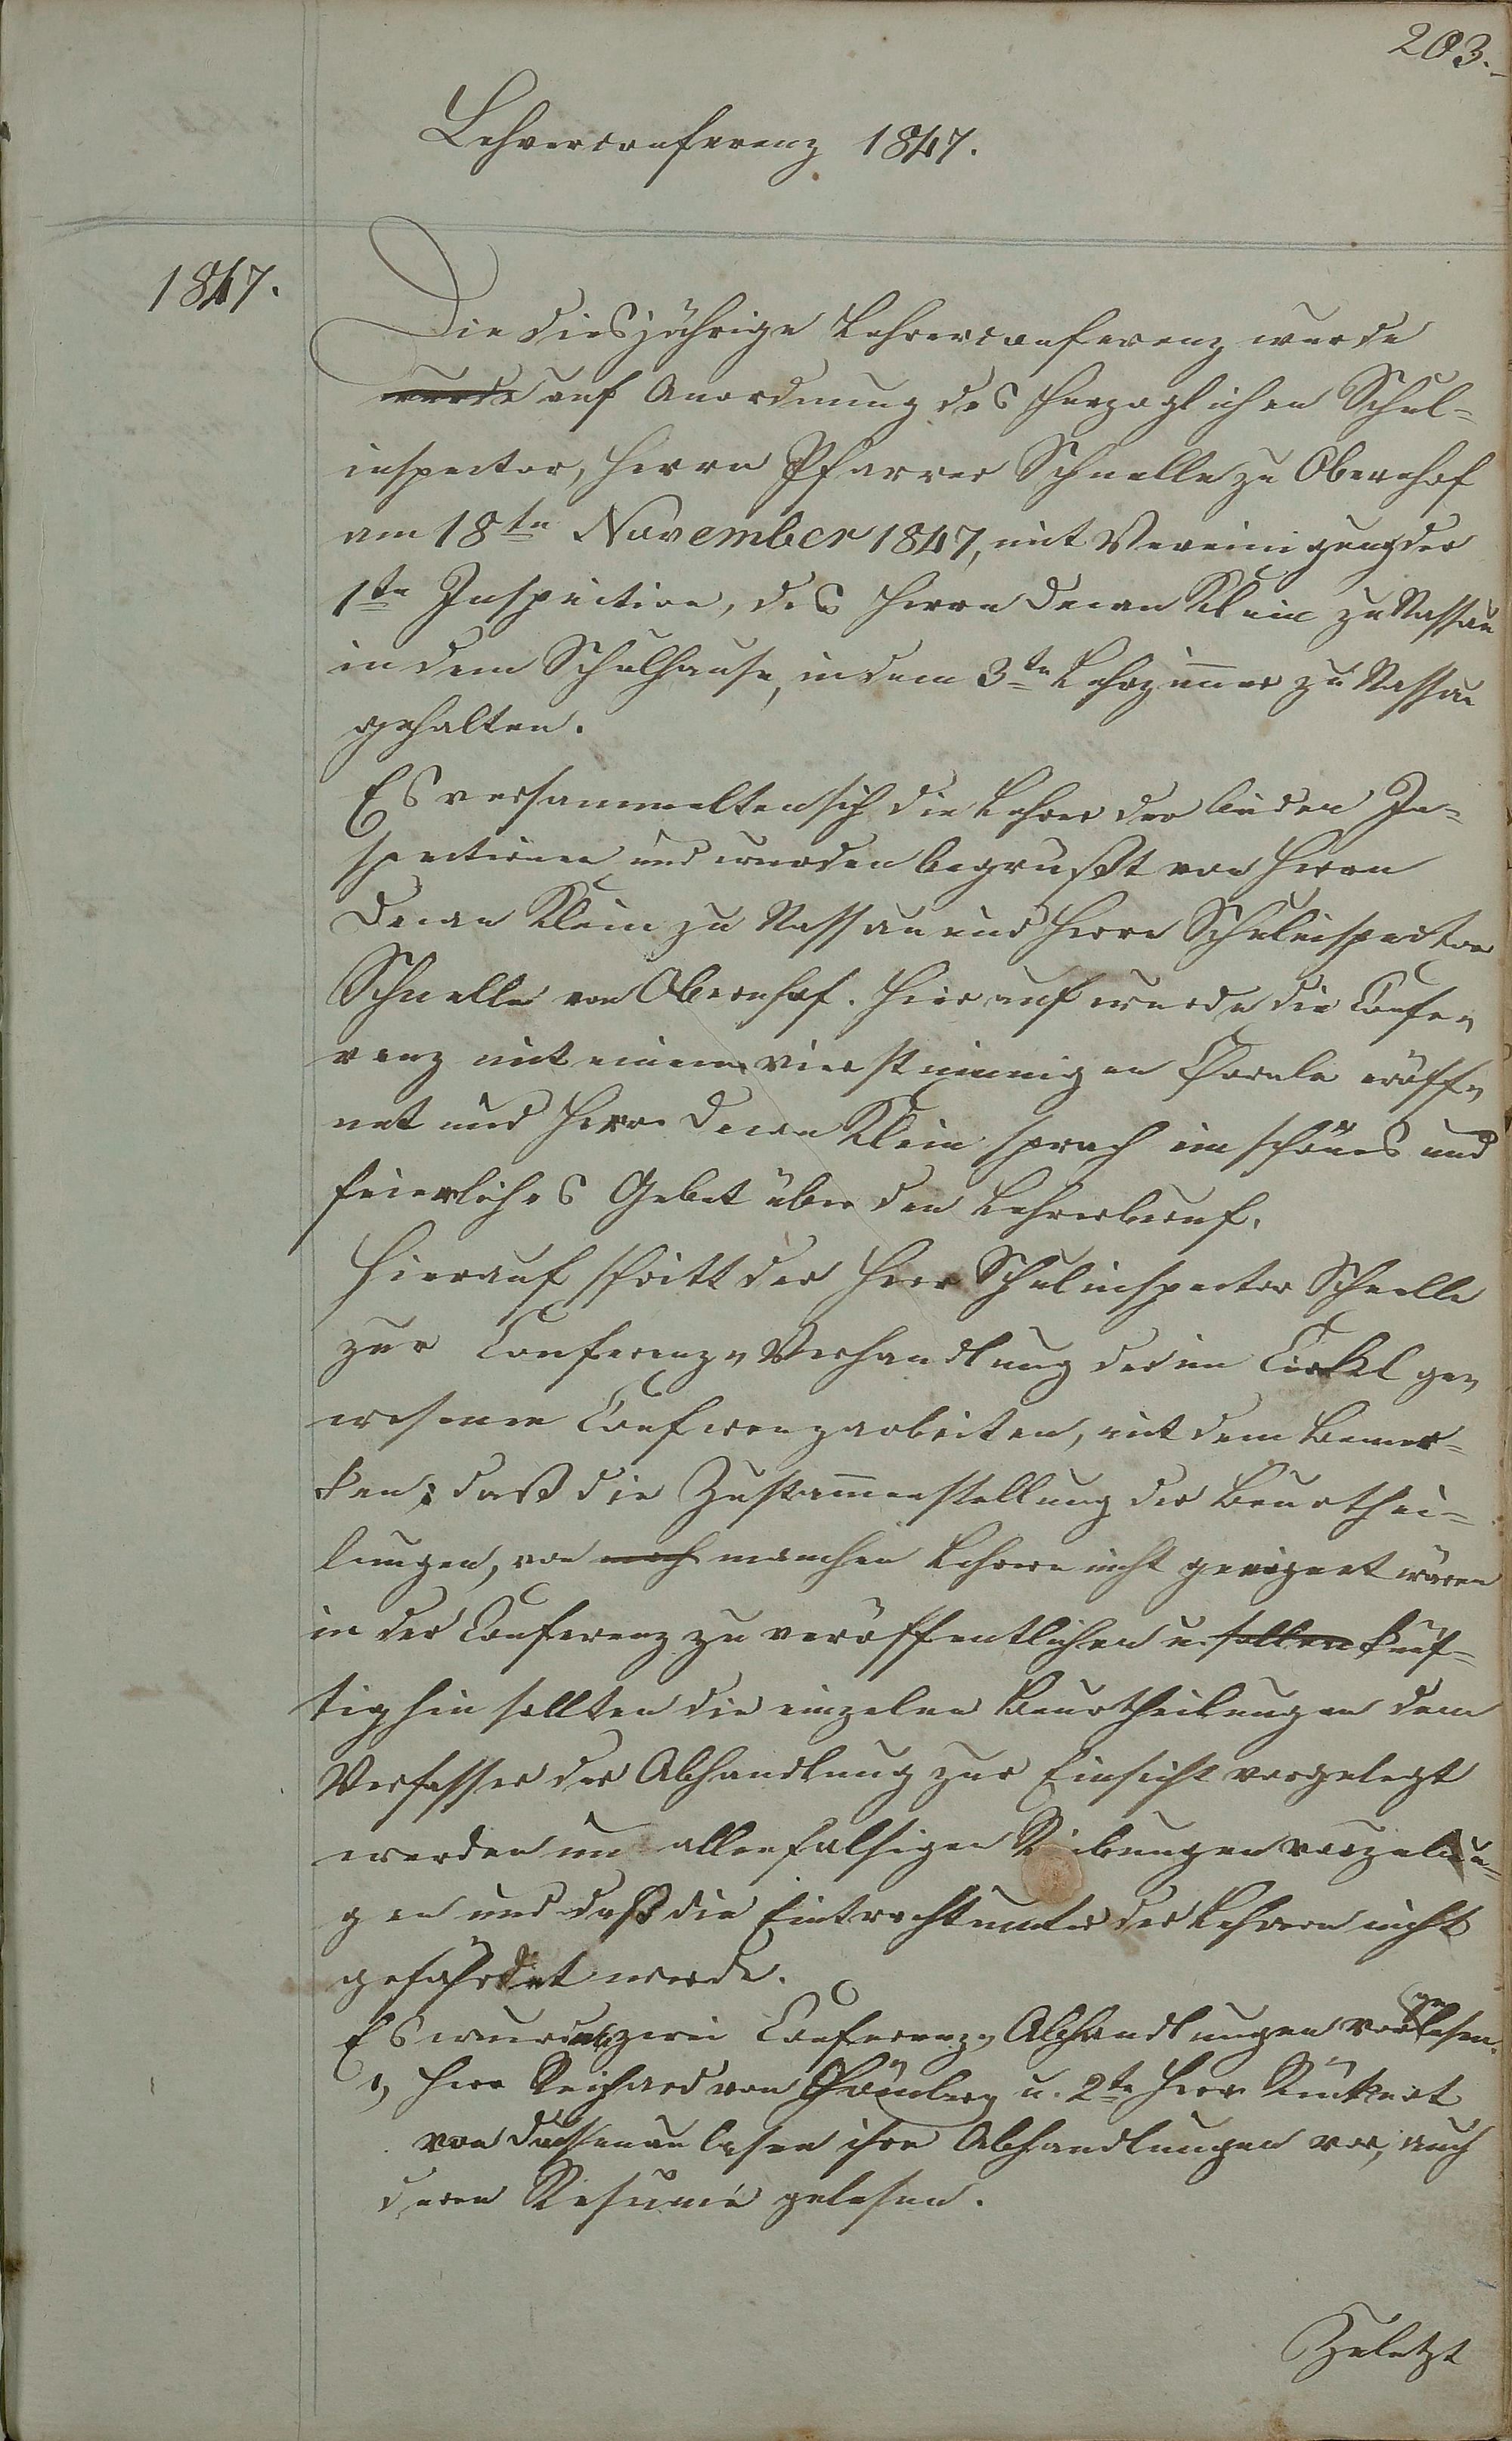 203.
Lehrerconferenz 1847.
1847.
Die diesjährige Lehrerconferenz wurde
wurde auf Anordnung des Herzoglichen Schul=
inspector, Herrn Pfarrer Schnelle zu Obernhof
am 18ten November 1847, mit Vereinigung der
1ten Inspection, des Herrn Decan Klein zu Nassau
in dem Schulhause, in dem 3ten Lehrzimmer zu Nassau
gehalten.
Es versammelten sich die Lehrer der beiden In=
spectionen und wurden begrüßt von Herrn
Decan Klein zu Nassau und Herrn Schulinspector
Schnelle von Obernhof. Hierauf wurde die Confe=
renz mit einem vierstimmigen Chorale eröff=
net und Herr Decan Klein sprach ein schönes und
feierliches Gebet über den Lehrerberuf.
Hierauf schritt der Herr Schulinspector Schnelle
zur Conferenz=Verhandlung der im Cirkel ge=
wesenen Conferenzarbeiten, mit dem Bemer=
ken; daß die Zusammenstellung der Beurthei=
lungen, von noch manchen Lehrern nicht geeignet wären
in der Conferenz zu veröffentlichen u. sollen künf=
tighin sollten die einzelnen Beurtheilungen dem
Verfasser der Abhandlung zur Einsicht vorgelegt
werden um allenfalsigen Reibungen vorzubeu=
gen und daß die Eintracht unter der Lehrern nicht
gefährdet werde.
Es wurden zwei Conferenz=Abhandlungen vorgelesen.
1, Herr Reichard von Schönberg u. 2te Herr Rückert
von Dessenau lasen ihre Abhandlungen vor, auch
deren Resumé gelesen.
Zuletzt